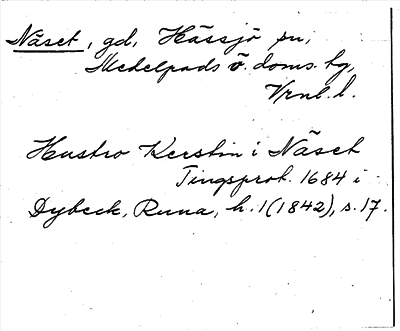 Näset, gd, Hässjö sn,
Medelpads ö. doms. hg,
Vrnl. l.
Hustro Kerstin i Näset
Tingsprot. 1684 i
Dybeck, Runa, h. 1 (1842), s. 17.